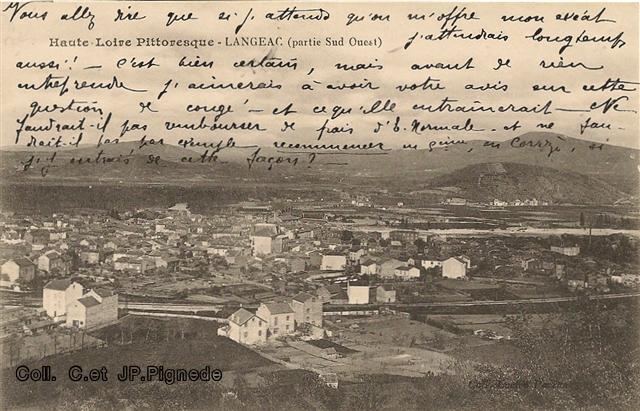 Vous allez dire que si j'attends qu'on m'offre mon exéat
j'attendrais longtemps
Haute Loire Pittoresque - LANGEAC (partie Sud Ouest)
aussi! - C'est bien certain, mais avant de rien
entreprendre j'aimerais à avoir votre avis sur cette
question de congé - et ce qu'elle entraînerait - Ne
faudrait-il pas rembourser de frais d'E. Normale - et ne fau-
drait-il pas par exemple recommencer en Corrèze, si
j'y entrais de cette façon?
Coll. C.et JP.Pignede